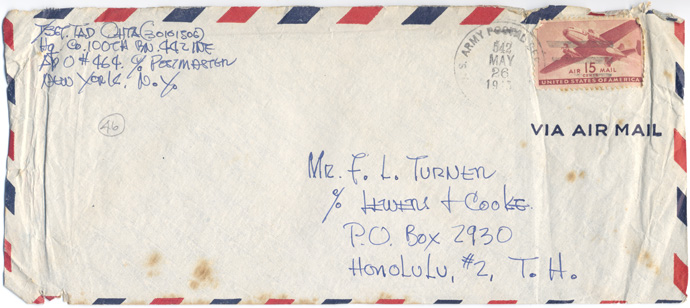 T/SGT. TAD OHTA (30101505)
HQ. CO. 100TH BN. 442 INF.
APO #464. % POSTMASTER
NEW YORK, N.Y.
46
U.S. ARMY POSTAL SE
542
MAY
26
AIR 15 MAIL
UNITED STATES OF AMERICA
VIA AIR MAIL
MR. F. L. TURNER
% LEWERS & COOKE
P.O. BOX 2930
HONOLULU, #2, T. H.